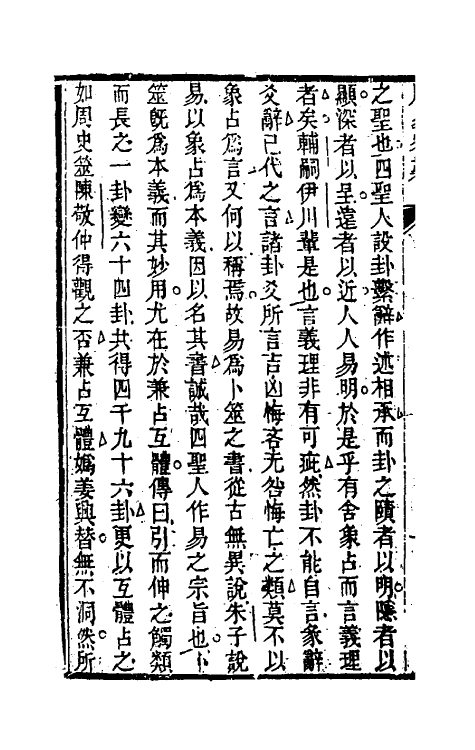 之聖也四聖人設卦繫辭作述相承而卦之賾者以明隱者以
顯深者以呈遠者以近人人易明於是乎有舍象占而言義理
者矣輔嗣伊川輩是也言義理非有可疵然卦不能自言象辭
爻辭已代之言諸卦爻所言吉凶悔吝无咎悔亡之類莫不以
象占爲言又何以稱焉故易爲卜筮之書從古無異說朱子說
易以象占爲本義因以名其書誠哉四聖人作易之宗旨也卜
筮既爲本義而其妙用尤在於兼占互體傳曰引而伸之觸類
而長之一卦變六十四卦共得四千九十六卦更以互體占之
如周史筮陳敬仲得觀之否兼占互體嬀姜興替無不洞然所